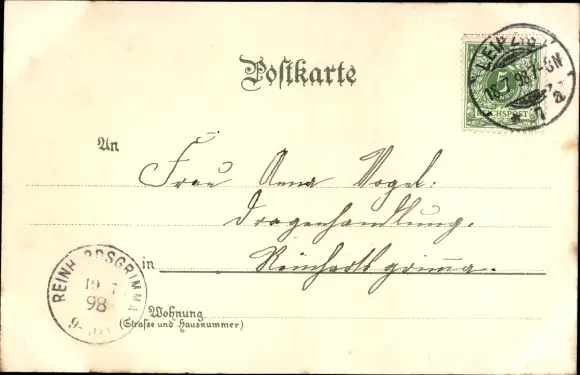 Postkarte
LEIPZIG
18.7.98.7-8N
* 7 a
5
REICHSPOST
An
Frau Anna Vogel:
Drogenhandlung.
in Reinhardtsgrimma.
REINHARDTSGRIMMA
19 7
98
9-
Wohnung
(Straße und Hausnummer)